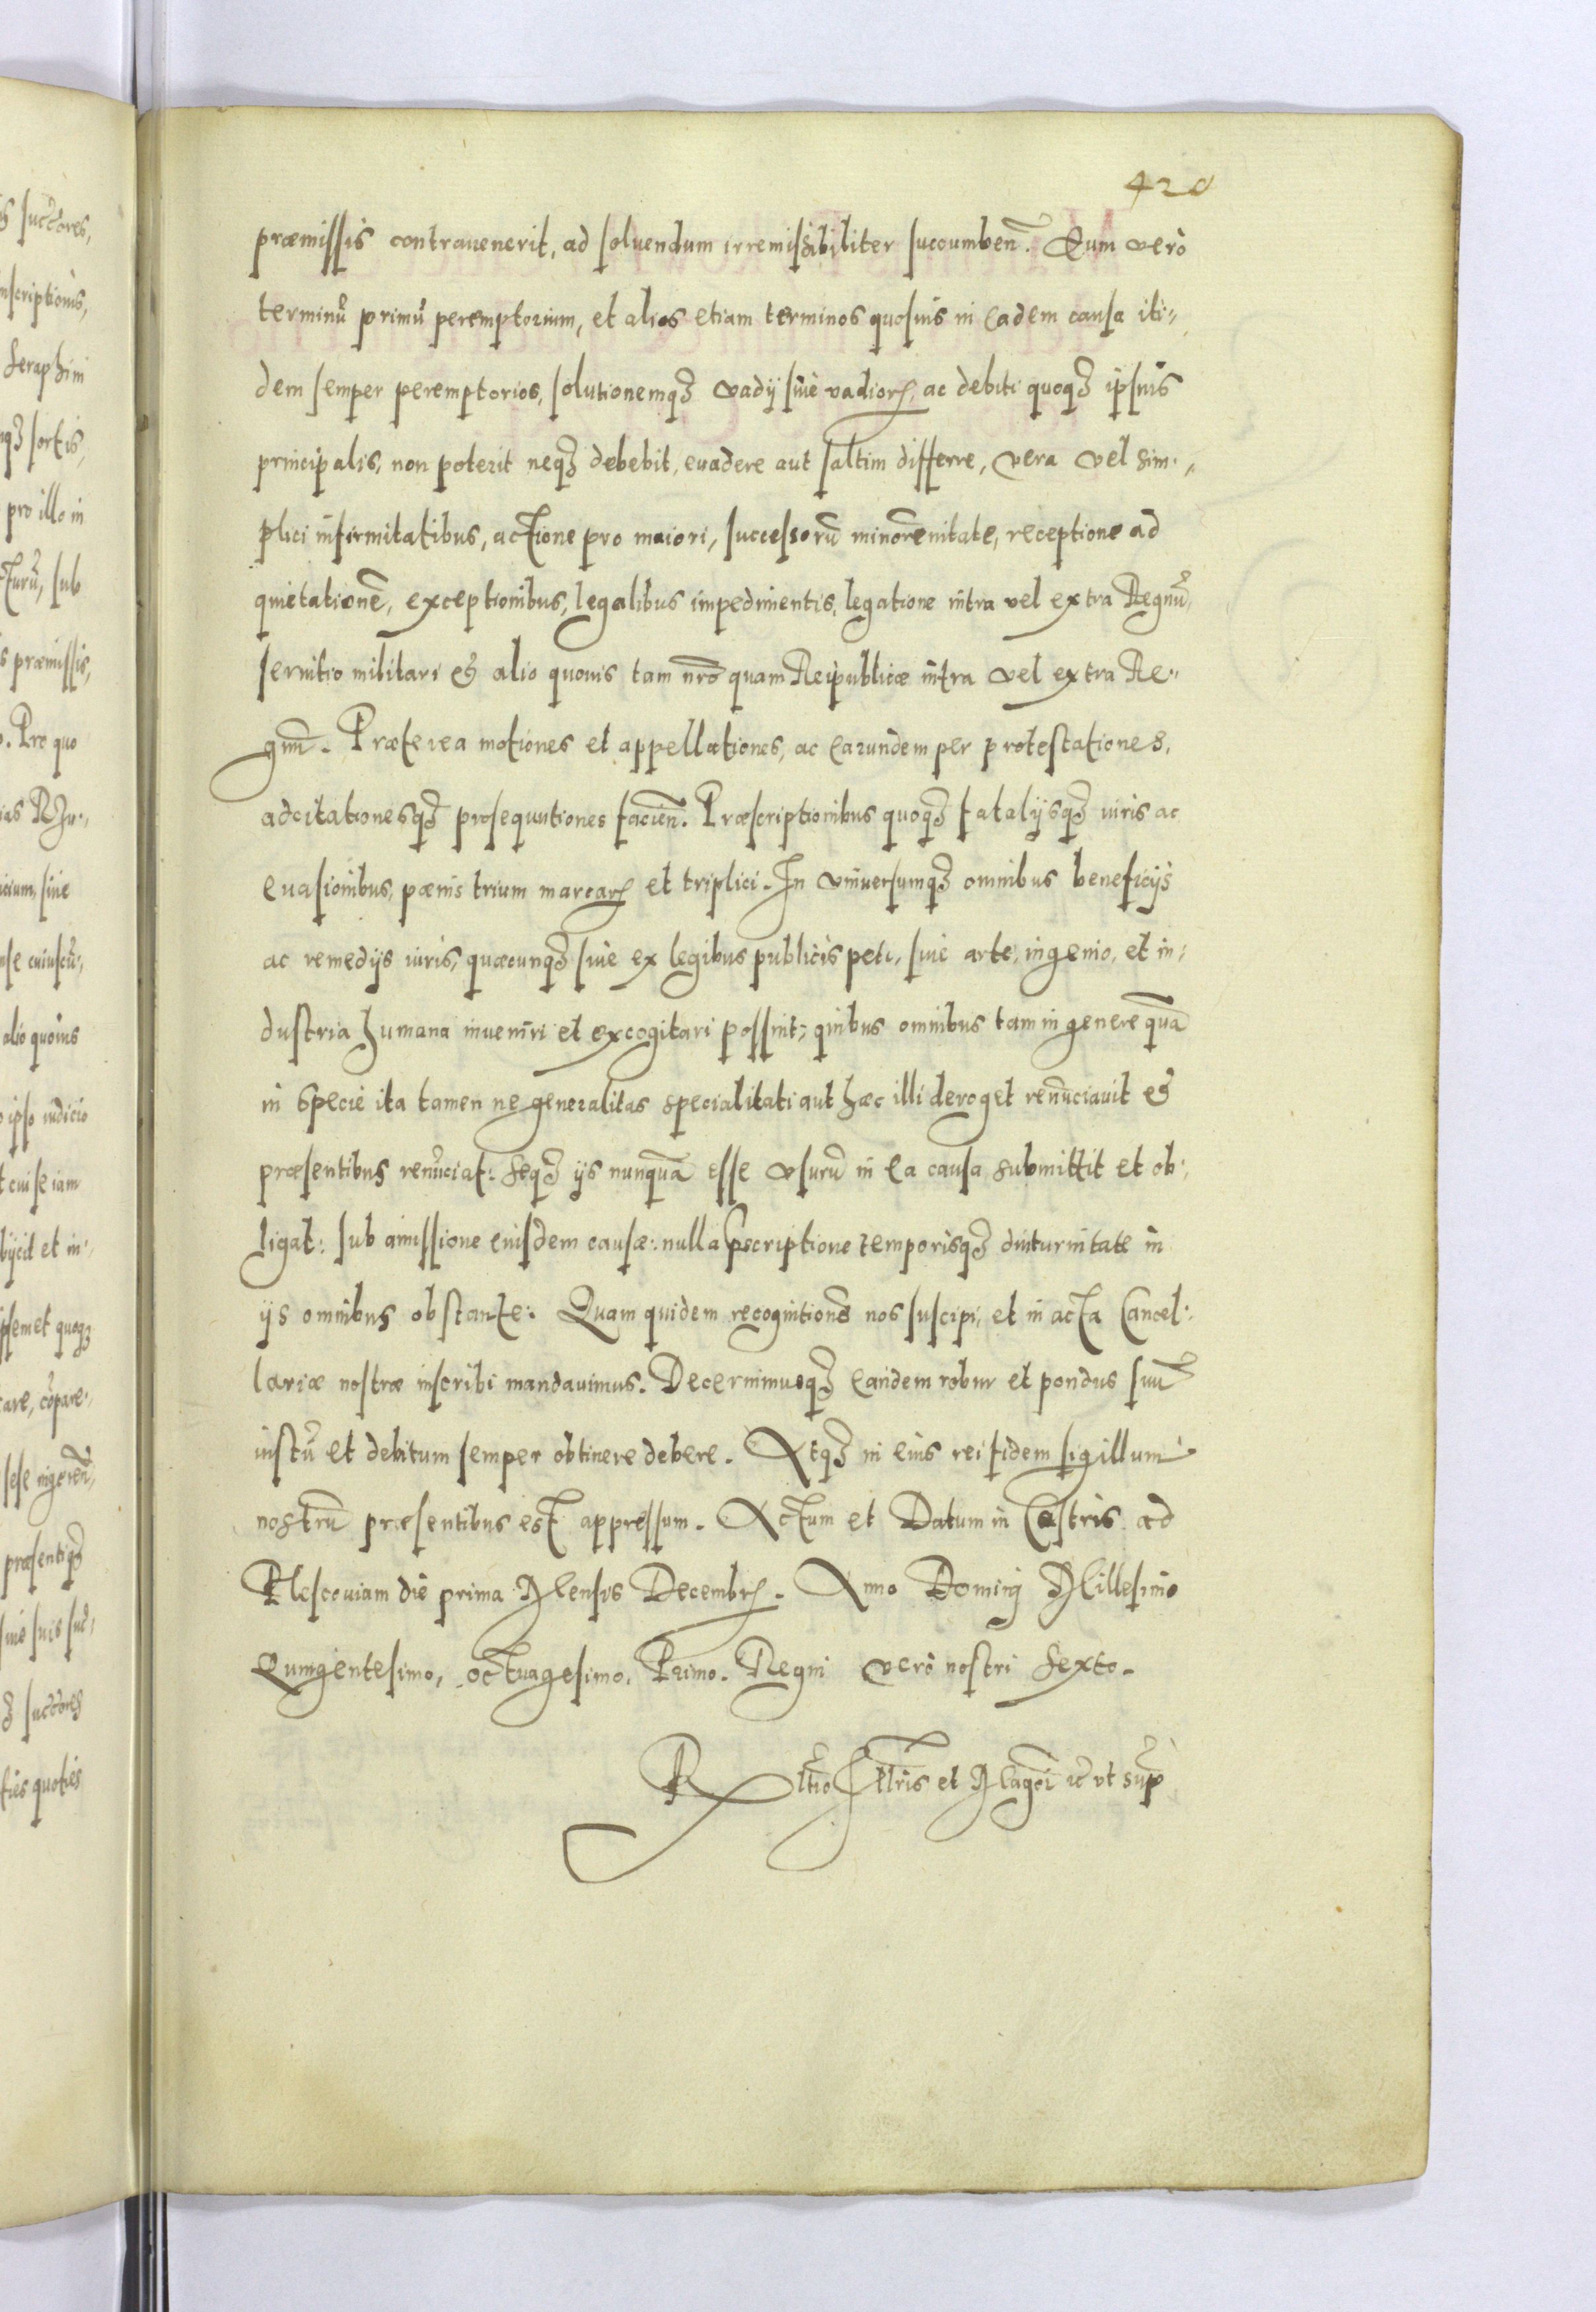 420
præmissis contrauenerit, ad soluendum irremissibiliter succumbeñ. Eum verò
terminũ primũ peremptorium, et alios etiam terminos quosuis in eadem causa iti=
dem semper peremptorios, solutionemqꝫ vadij siuè vadiorꝝ, ac debiti quoqꝫ ipsius
principalis, non poterit neqꝫ debebit, euadere aut saltim differre, vera vel sim=
plici infirmitatibus, actione pro maiori, successorũ minorẽnitate, receptione ad
quietationẽ, exceptionibus, legalibus impedimentis, legatione intra vel extra Regnũ,
seruitio militari et alio quouis tam nr̃o quam Reipublicæ intra vel extra Re=
gnũ. Præterea motiones et appellationes, ac earundem per protestationes,
adcitationesqꝫ prosequutiones facieñ. Præscriptionibus quoqꝫ fatalijsqꝫ iuris ac
euasionibus, pœnis trium marcarꝝ et triplici. In vniuersumqꝫ omnibus beneficijs
ac remedijs iuris, quæcunqꝫ siue ex legibus publicis peti, siue arte, ingenio, et in=
dustria humana inueniri et excogitari possint; quibus omnibus tam in genere quã
in specie ita tamen ne generalitas specialitati aut hæc illi deroget renũciauit et
præsentibus renũciat: seqꝫ ijs nunquã esse vsurũ in ea causa submittit et ob=
ligat: sub amissione eiusdem causæ: nulla p̃scriptione temporisqꝫ diuturnitate in
ijs omnibus obstante: Quam quidem recognitionẽ nos suscipi, et in acta Cancel=
lariæ nostræ inscribi mandauimus. Decernimusqꝫ eandem robur et pondus suũ
iustũ et debitum semper obtinere debere. Atqꝫ in eius rei fidem sigillum
nostrũ præsentibus est appressum. Actum et Datum in Castris ad
Plescouiam die prima Mensis Decembrꝭ. Anno Domini Millesimo
Quingentesimo, octuagesimo, Primo. Regni verò nostri Sexto.
Rltĩo Illr̃is et Magci ꝛc̃ vt sup̃